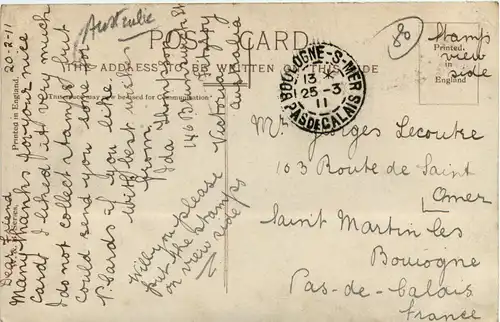 Australie
POST CARD.
THE ADDRESS TO BE WRITTEN ON THIS SIDE
This space may be used for Communication.
Printed in England.
20-2-11
Dear Friend
Many thanks for your nice
card. I liked it very much
I do not collect stamps but
could send you some for
P. Cards if you like.
With best wishes
from,
Ida Thompson
146 Brunswick St
Fitzroy
Victoria
Australia
Will you please
put the stamps
on view side
80
Stamps
view
side
Printed
in
England
BOULOGNE-S-MER
13
25-3
11
PAS DE CALAIS
Mr Georges Lecoutre
103 Route de Saint
Omer
Saint Martin les
Boulogne
Pas-de-Calais
France